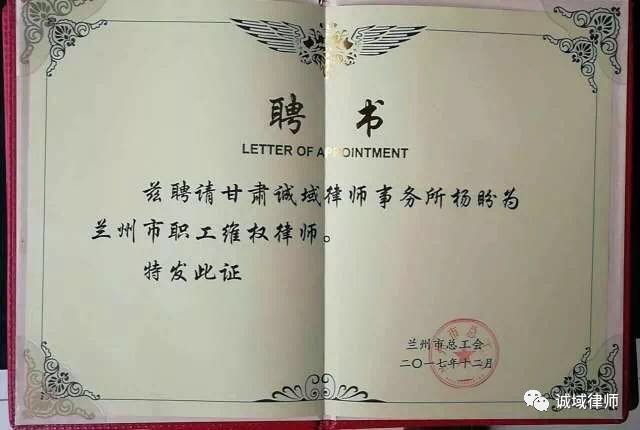 聘 书
LETTER OF APPOINTMENT
兹聘请甘肃诚域律师事务所杨盼为
兰州市职工维权律师。
特发此证
兰州市总工会
二〇一七年十二月
诚域律师